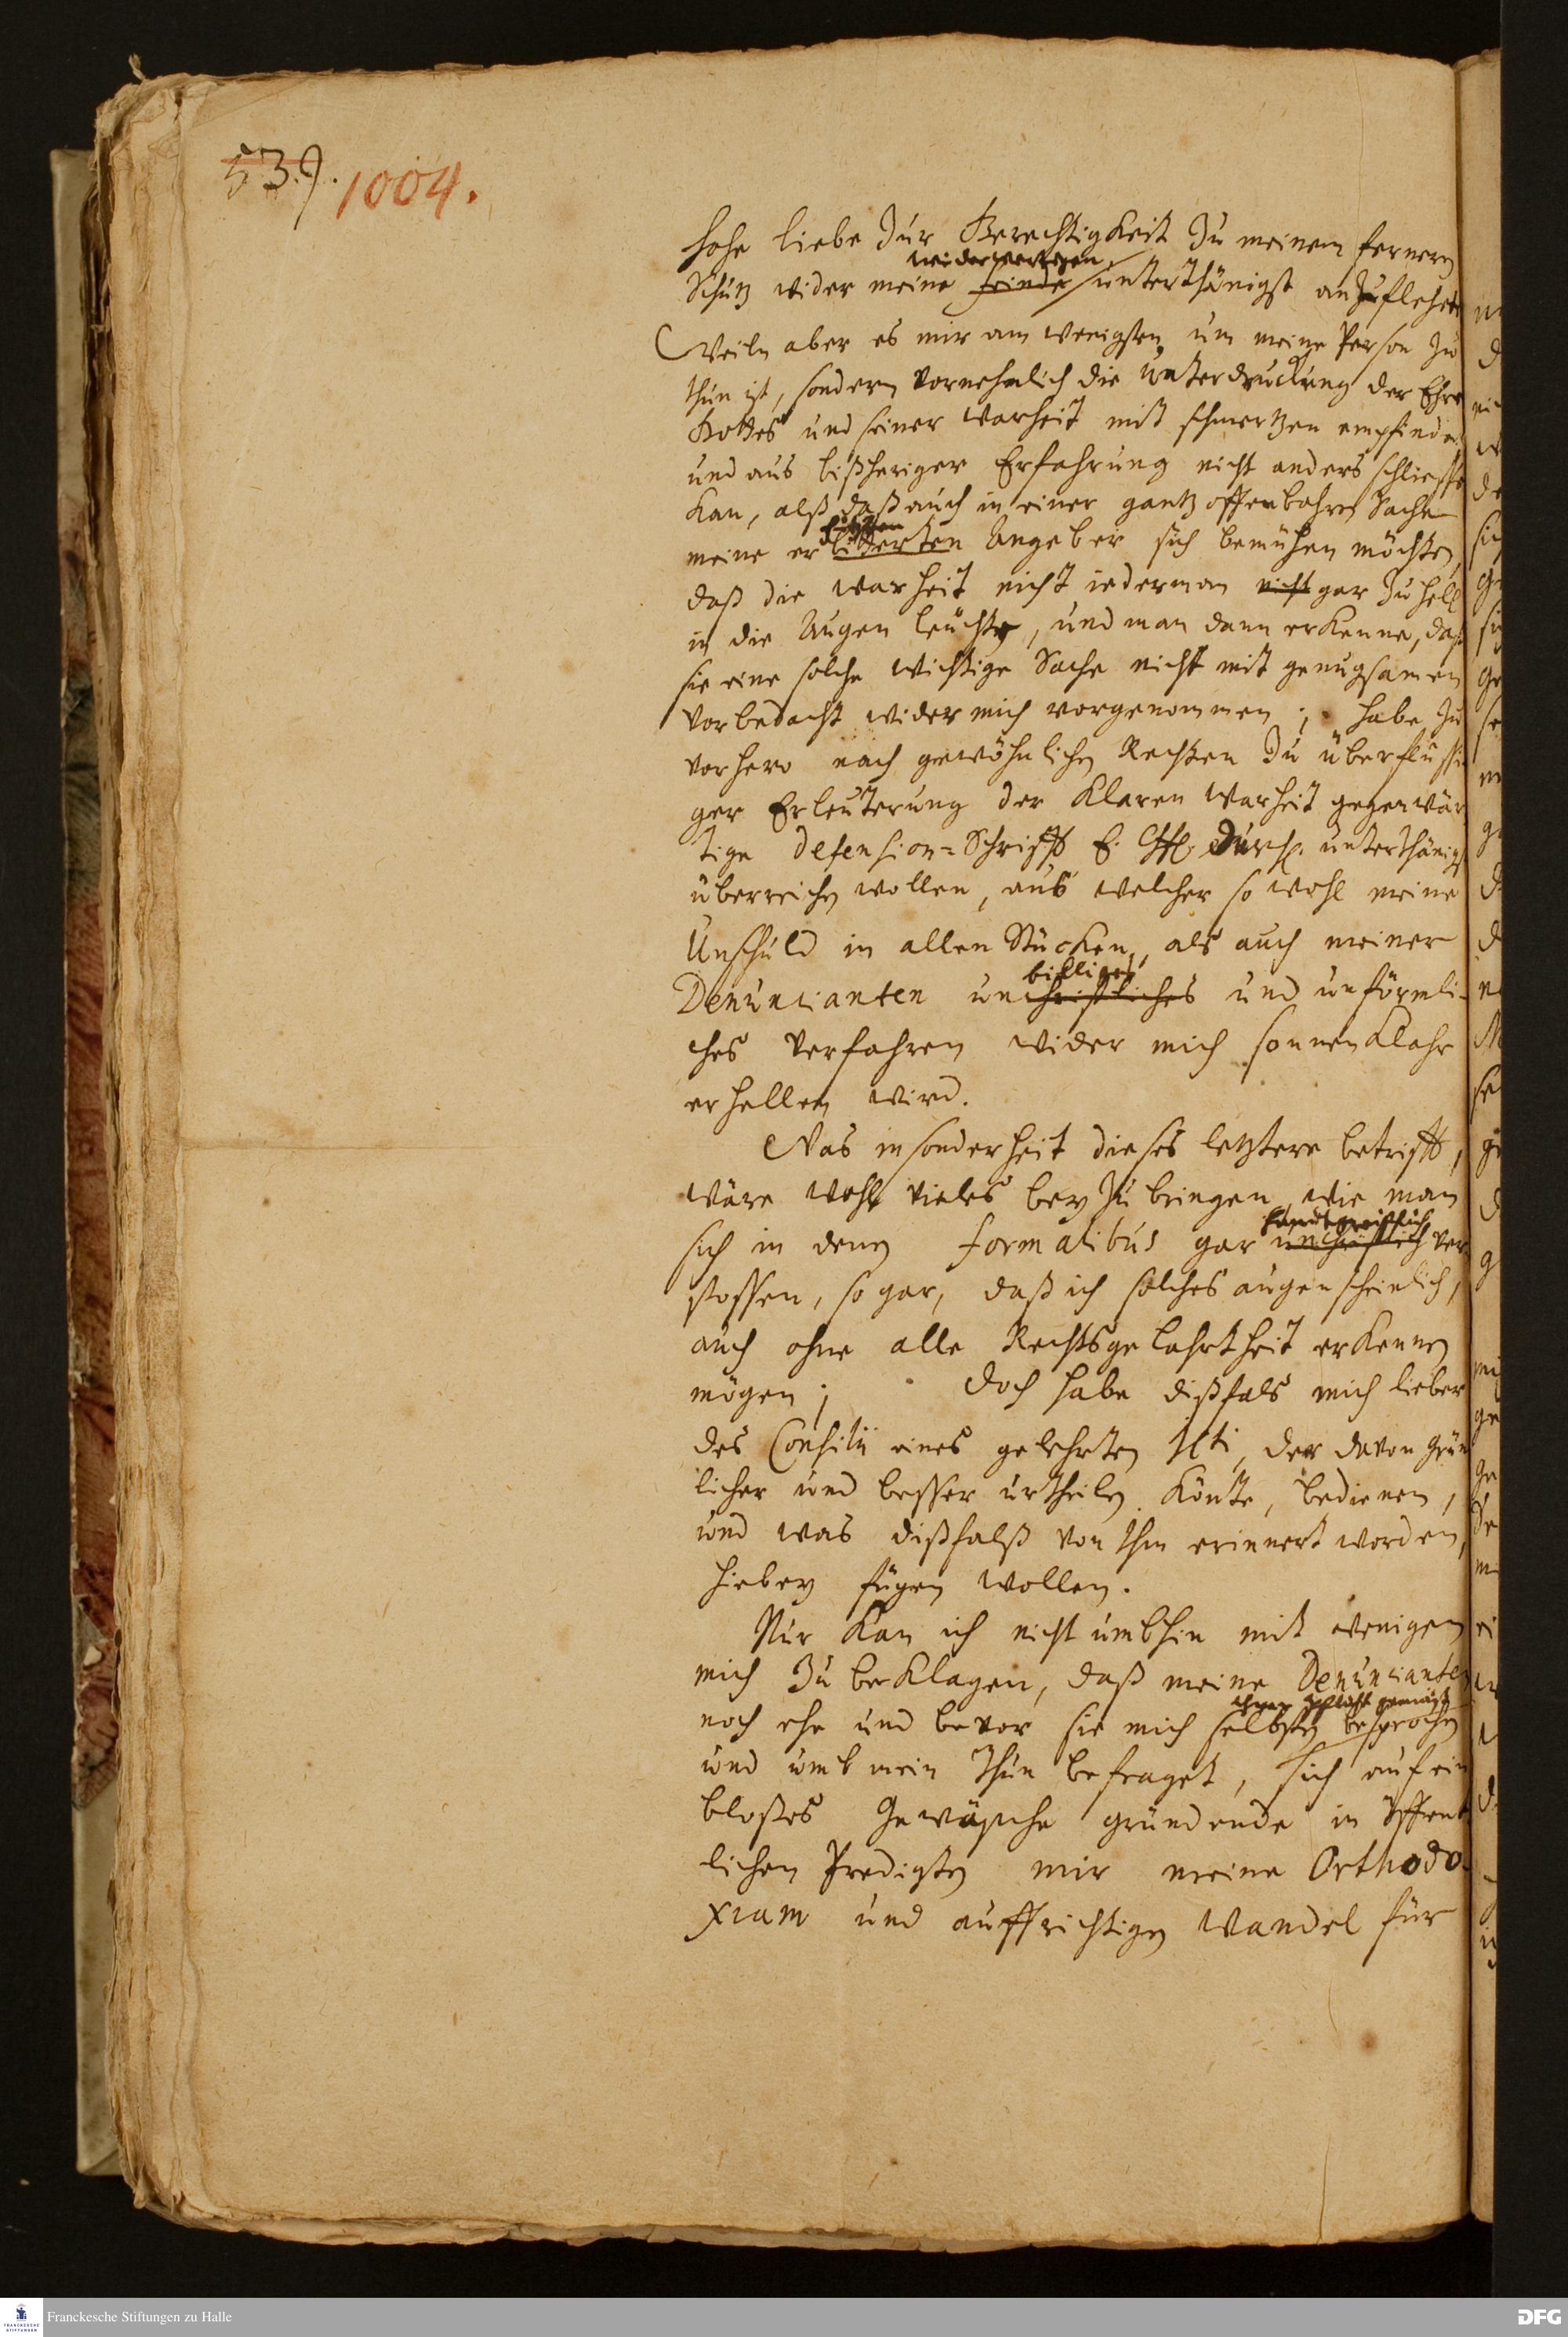 539. 1004.
hohe Liebe zur Gerechtigkeit zu meinem fernern
widerwertigen
Schutz wider meine feinde unterthänigst anzuflehen
Weiln aber es mir am wenigsten um meine Person zu
thun ist, sondern vornehmlich die unterdruckung der Ehre
Gottes und seiner warheit mit schmertzen empfinde,
und aus bißheriger Erfahrung nicht anders schliessen
kan, alß daß auch in einer gantz offenbahren Sache
meine erbitterten Angeber sich bemühen möchten,
daß die warheit nicht iederman nicht gar zu hell
in die Augen leuchte, und man dann erkenne, daß
sie eine solche wichtige Sache nicht mit genugsamen
vorbedacht wider mich vorgenommen; habe zu
vorhero nach gewöhnlichen Rechten zu überflüssi
ger Erleuterung der klaren warheit gegenwär
tige Defension=Schrifft E. Churfl. Durchl. unterthänigst
überreichen wollen, aus welcher so wohl meine
Unschuld in allen Stücken, als auch meiner
billiges
Denuncianten unchristliches und unförmli-
ches verfahren wider mich sonnenklahr
erhellen wird.
Was insonderheit dieses letztere betrifft,
wäre wohl vieles bey zu bringen, wie man
handgreifflich
sich in denen formalibus gar unchristlich ver
stossen, so gar, daß ich solches augenscheinlich,
auch ohne alle Rechtsgelahrtheit erkennen
mögen; doch habe dißfals mich lieber
des Consilii eines gelehrten JCti, der davon gründ
licher und besser urtheilen könte, bedienen,
und was dißfalß von Ihm erinnert worden,
hiebey fügen wollen.
Nur kan ich nicht umbhin mit wenigen
mich zu beklagen, daß meine Denuncianten
ihrer Pflicht gemäß
noch ehe und bevor sie mich selbsten besprochen
und umb mein Thun befraget, sich auf ein
bloßes Gewäsche gründende in öffent
lichen Predigten mir meine Orthodo-
xiam und auffrichtigen Wandel für
Franckesche Stiftungen zu Halle
FRANCKESCHE
STIFTUNGEN
DFG